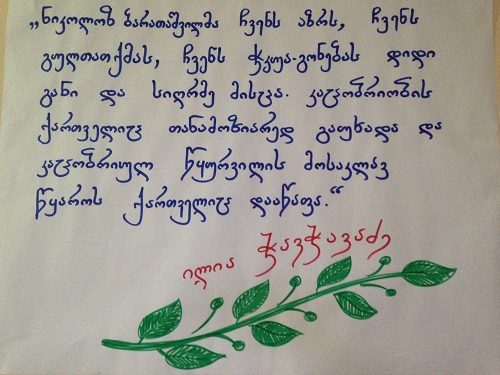 „ნიკოლოზ ბარათაშვილმა ჩვენს აზრს, ჩვენს
გულთათქმას, ჩვენს ჭკუა-გონებას დიდი
განი და სიღრმე მისცა. კაცობრიობის
ქართველიც თანამოზიარედ გაუხადა და
კაცობრიულ წყურვილის მოსაკლავ
წყაროს ქართველიც დააწაფა.“
ილია ჭავჭავაძე